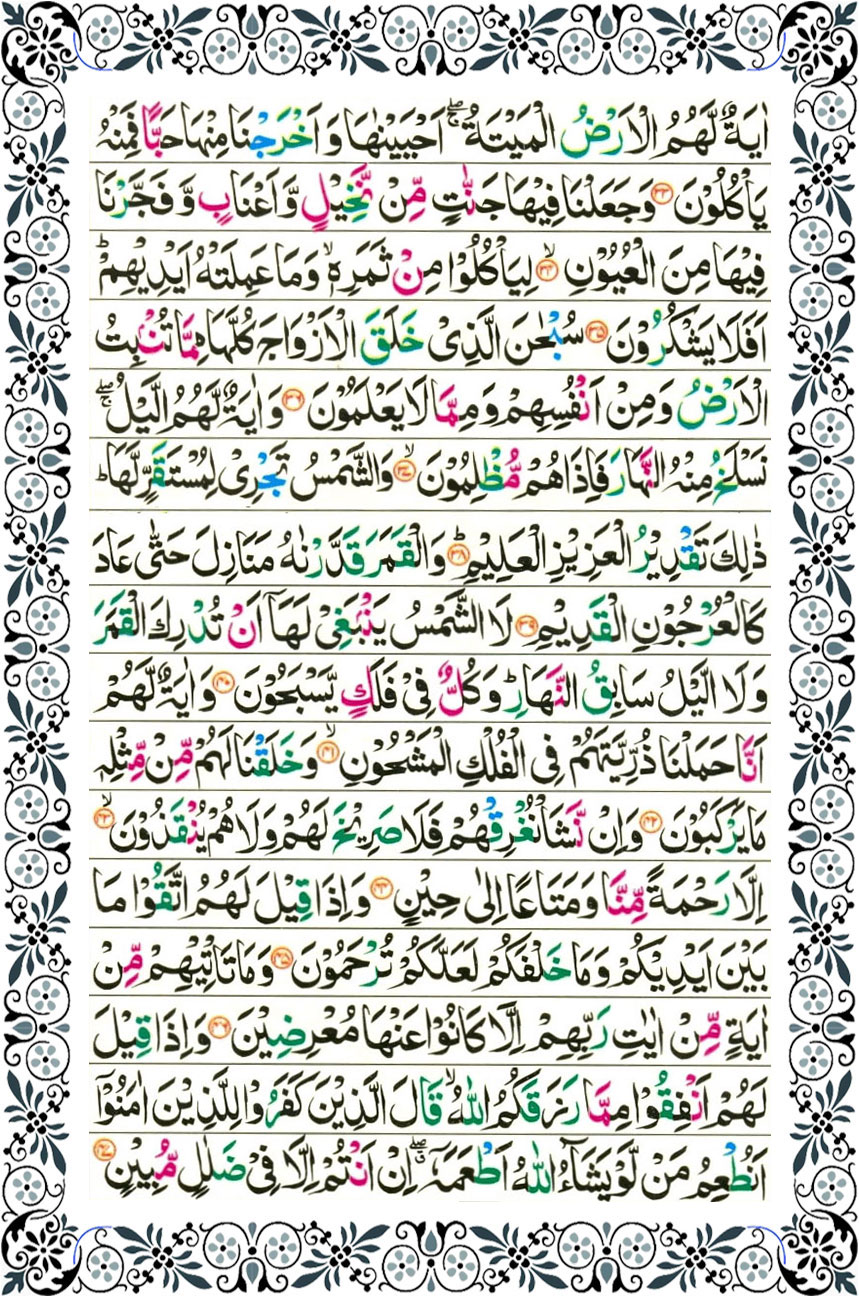 اٰيَةٌ لَّهُمُ الْاَرْضُ الْمَيْتَةُ ۖۚ اَحْيَيْنٰهَا وَ اَخْرَجْنَا مِنْهَا حَبًّا فَمِنْهُ
يَاْكُلُوْنَ ۳۳ وَ جَعَلْنَا فِيْهَا جَنّٰتٍ مِّنْ نَّخِيْلٍ وَّ اَعْنَابٍ وَّ فَجَّرْنَا
فِيْهَا مِنَ الْعُيُوْنِ ۙ ۳۴ لِيَاْكُلُوْا مِنْ ثَمَرِهٖ ۙ وَ مَا عَمِلَتْهُ اَيْدِيْهِمْ ؕ
اَفَلَا يَشْكُرُوْنَ ۳۵ سُبْحٰنَ الَّذِىْ خَلَقَ الْاَزْوَاجَ كُلَّهَا مِمَّا تُنْۢبِتُ
الْاَرْضُ وَ مِنْ اَنْفُسِهِمْ وَ مِمَّا لَا يَعْلَمُوْنَ ۳۶ وَ اٰيَةٌ لَّهُمُ الَّيْلُ ۖۚ
نَسْلَخُ مِنْهُ النَّهَارَ فَاِذَا هُمْ مُّظْلِمُوْنَ ۙ ۳۷ وَ الشَّمْسُ تَجْرِىْ لِمُسْتَقَرٍّ لَّهَا ؕ
ذٰلِكَ تَقْدِيْرُ الْعَزِيْزِ الْعَلِيْمِ ؕ ۳۸ وَ الْقَمَرَ قَدَّرْنٰهُ مَنَازِلَ حَتّٰى عَادَ
كَالْعُرْجُوْنِ الْقَدِيْمِ ۳۹ لَا الشَّمْسُ يَنْۢبَغِىْ لَهَاۤ اَنْ تُدْرِكَ الْقَمَرَ
وَ لَا الَّيْلُ سَابِقُ النَّهَارِ ؕ وَ كُلٌّ فِىْ فَلَكٍ يَّسْبَحُوْنَ ۴۰ وَ اٰيَةٌ لَّهُمْ
اَنَّا حَمَلْنَا ذُرِّيَّتَهُمْ فِى الْفُلْكِ الْمَشْحُوْنِ ۙ ۴۱ وَ خَلَقْنَا لَهُمْ مِّنْ مِّثْلِهٖ
مَا يَرْكَبُوْنَ ۴۲ وَ اِنْ نَّشَاْ نُغْرِقْهُمْ فَلَا صَرِيْخَ لَهُمْ وَ لَا هُمْ يُنْقَذُوْنَ ۙ ۴۳
اِلَّا رَحْمَةً مِّنَّا وَ مَتَاعًا اِلٰى حِيْنٍ ۴۴ وَ اِذَا قِيْلَ لَهُمُ اتَّقُوْا مَا
بَيْنَ اَيْدِيْكُمْ وَ مَا خَلْفَكُمْ لَعَلَّكُمْ تُرْحَمُوْنَ ۴۵ وَ مَا تَاْتِيْهِمْ مِّنْ
اٰيَةٍ مِّنْ اٰيٰتِ رَبِّهِمْ اِلَّا كَانُوْا عَنْهَا مُعْرِضِيْنَ ۴۶ وَ اِذَا قِيْلَ
لَهُمْ اَنْفِقُوْا مِمَّا رَزَقَكُمُ اللّٰهُ ۙ قَالَ الَّذِيْنَ كَفَرُوْا لِلَّذِيْنَ اٰمَنُوْۤا
اَنُطْعِمُ مَنْ لَّوْ يَشَآءُ اللّٰهُ اَطْعَمَهٗۤ ۖ اِنْ اَنْتُمْ اِلَّا فِىْ ضَلٰلٍ مُّبِيْنٍ ۴۷